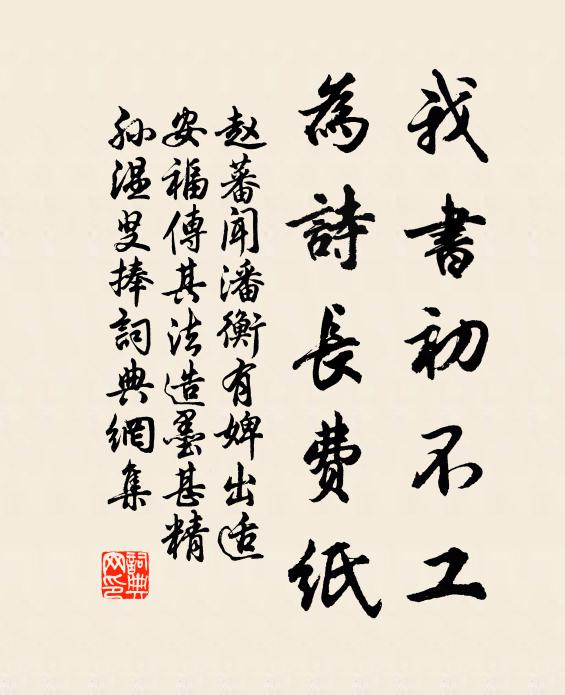 我書初不工
為詩長費紙
赵蕃闻潘衡有婢出适
安福傳其法造墨甚精
孙温叟捧詞典網集
詞典網印